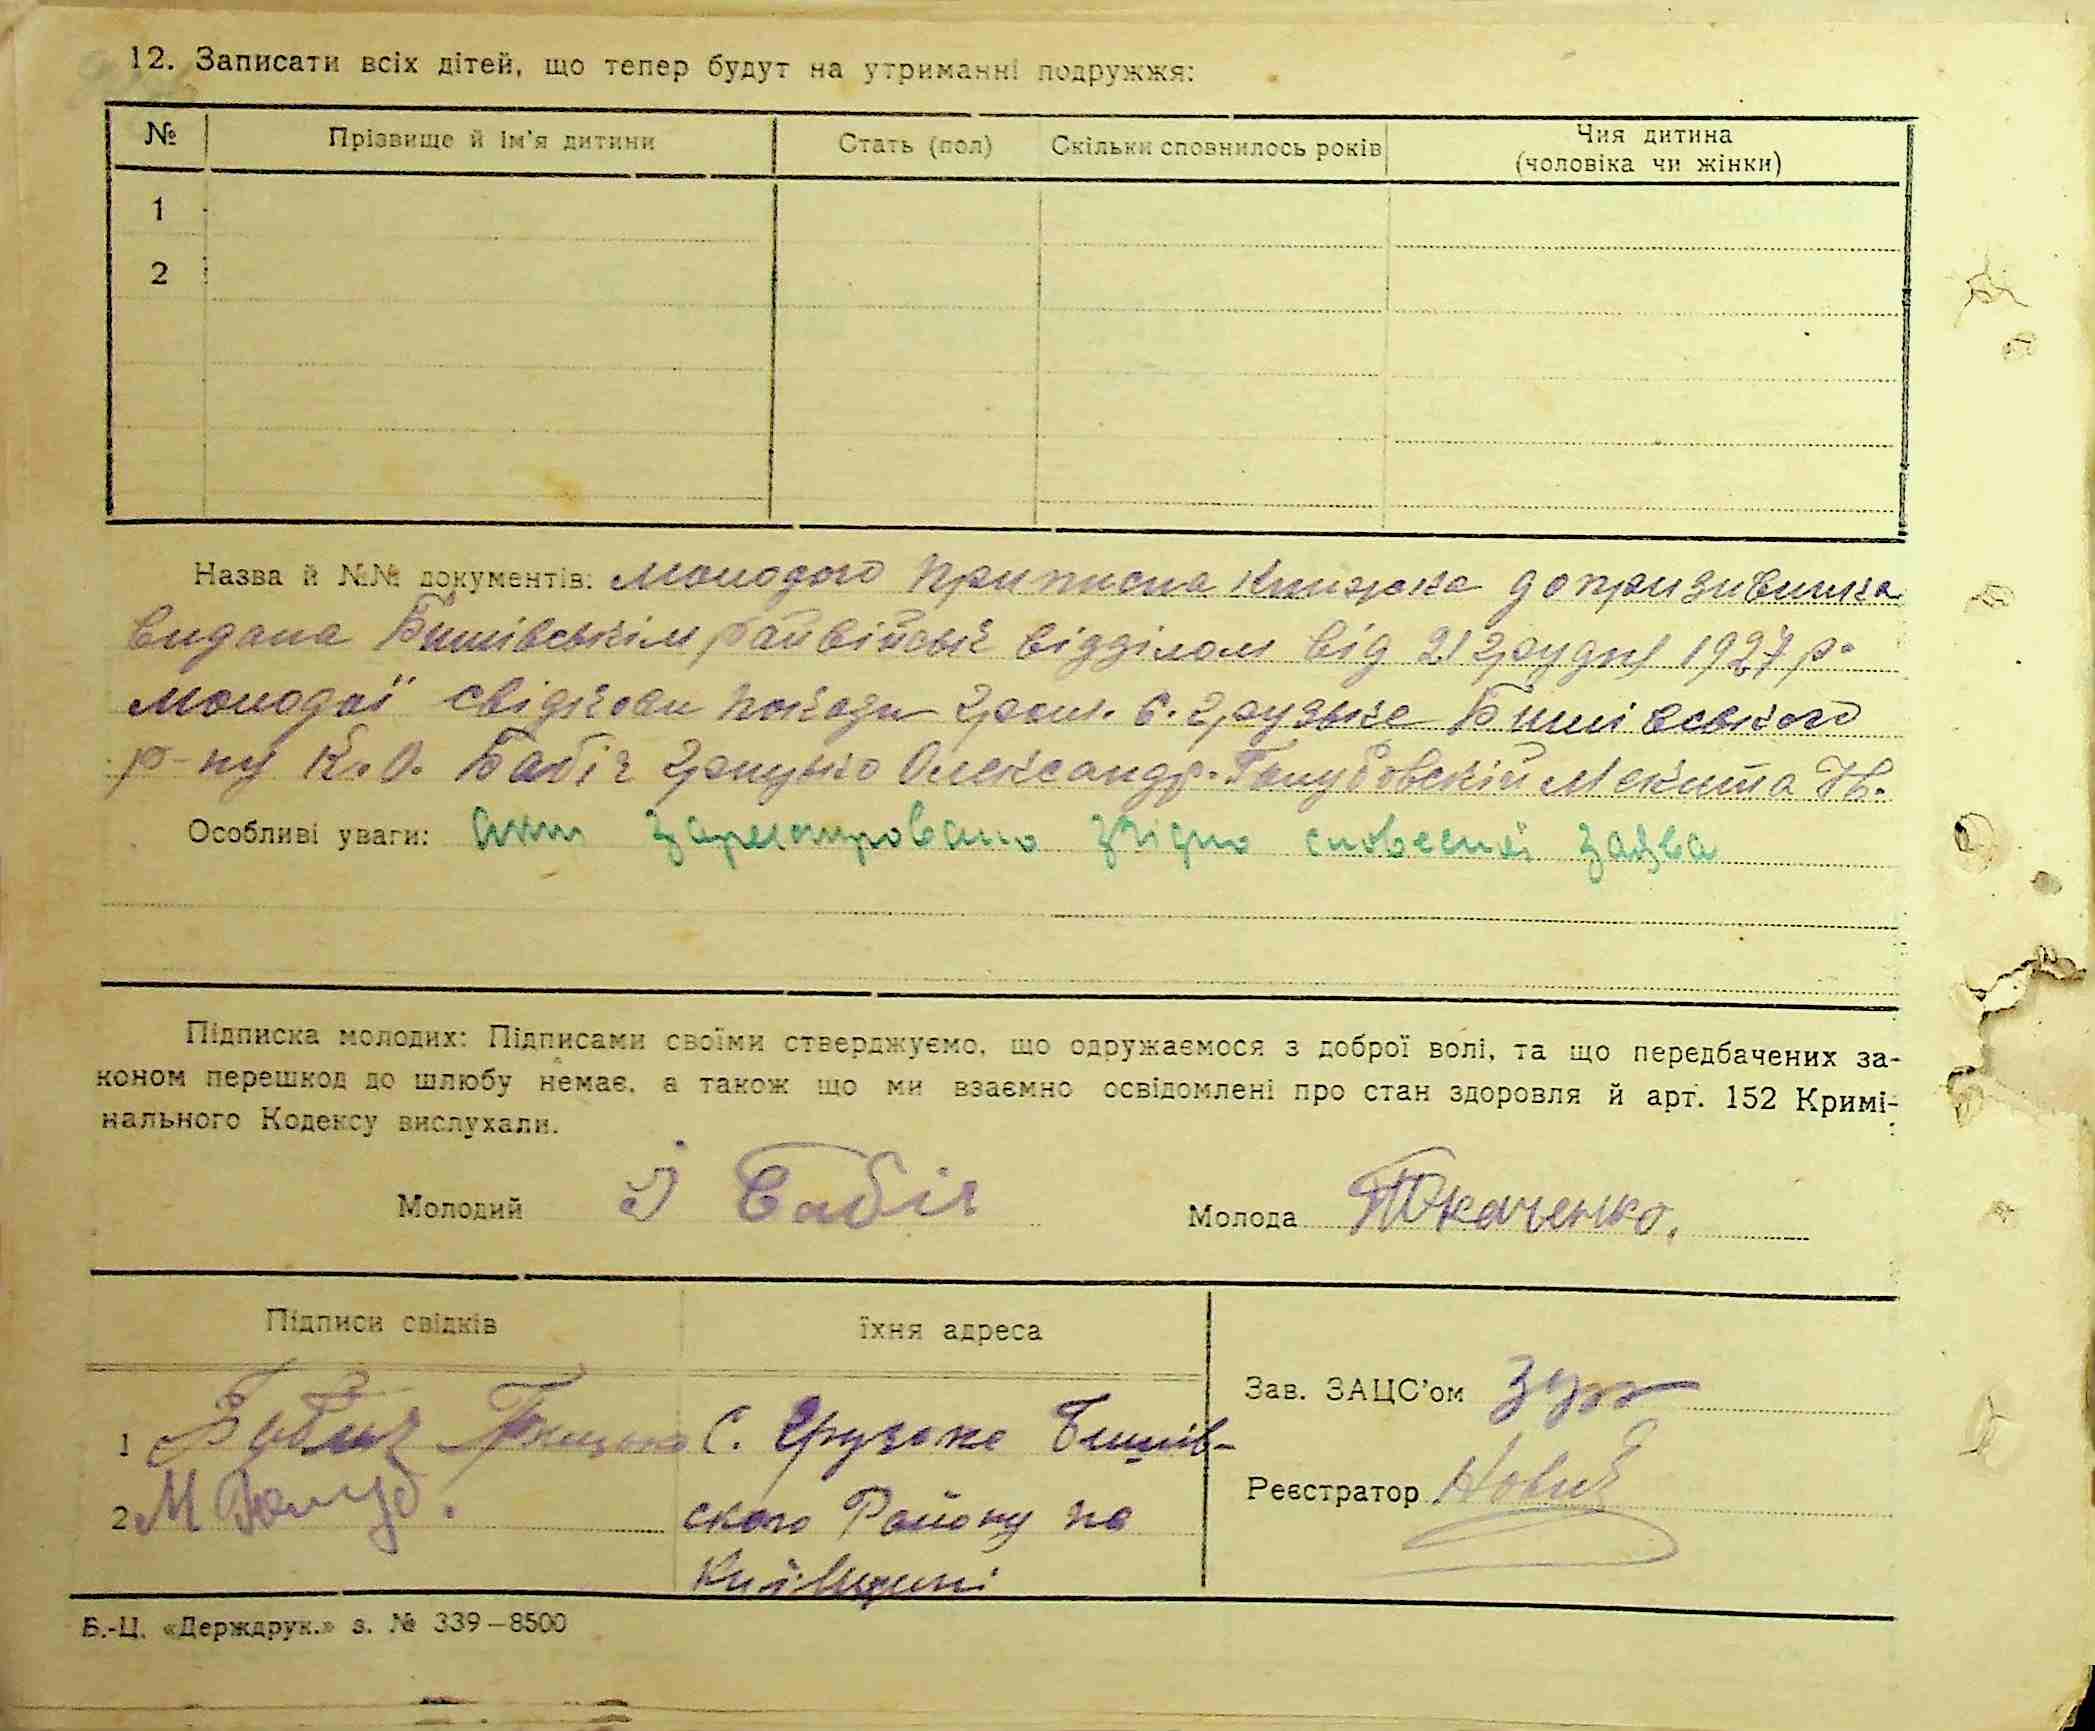 12. Записати всіх дітей, що тепер будут на утриманні подружжя:
№ Прізвище й ім'я дитини Стать (пол) Скільки сповнилось років Чия дитина
(чоловіка чи жінки)
1
2
Назва й №№ документів: Молодого приписна книжка допризивника
видана Бишівським райвійськ відділом від 21 грудня 1927 р.
Молодої свідками покози гром. с. Грузьке Бишівського
р-ну К. О. Бабіч Грицько Олександр. Голубовский Микита
Особливі уваги: акт зареєстровано згідно словесної заява
Підписка молодих: Підписами своїми стверджуємо, що одружаємося з доброї волі, та що передбачених за-
коном перешкод до шлюбу немає, а також що ми взаємно освідомлені про стан здоровля й арт. 152 Кримі-
нального Кодексу вислухали.
Молодий І Бабіч Молода Ткаченко.
Підписи свідків їхня адреса
Зав. ЗАЦС'ом
1 Бабич Грицько С. Грузьке Бишів-
2 М Голуб. ского Району на
Київщині
Реєстратор Новик
Б.-Ц. «Держдрук.» з. № 339—8500